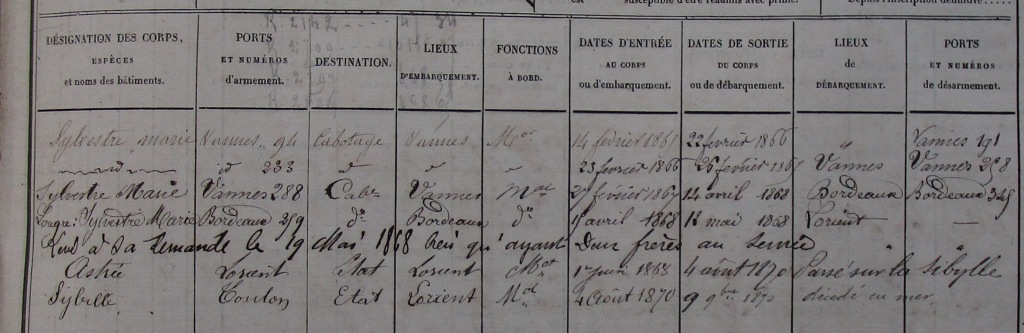 est susceptible d'être réadmis avec prime. Depuis l'inscription définitive
DÉSIGNATION DES CORPS, ESPÈCES et noms des bâtiments.
PORTS ET NUMÉROS d'armement.
DESTINATION.
LIEUX D'EMBARQUEMENT.
FONCTIONS À BORD.
DATES D'ENTRÉE AU CORPS ou d'embarquement.
DATES DE SORTIE DU CORPS ou de débarquement.
LIEUX de DÉBARQUEMENT.
PORTS ET NUMÉROS de désarmement.
Sylvestre marie Vannes, 94 Cabotage Vannes M 14 février 1865 22 février 1866 " Vannes 191
id 233 23 fevrier 1866 26 février 1867 Vannes Vannes 258
Sylvestre Marie Vannes 288 Cab Vannes 27 février 1867 14 avril 1868 Bordeaux Bordeaux 345
Lougre Sylvestre Marie Bordeaux 259 do Bordeaux do avril 1868 mai 1868 Lorient —
à sa demande le 19 Mai 1868 qu'ayant Deux frères au service " "
Astrée Lorient Etat Lorient Mot juin 1868 4 août 1870 Passé sur la Sibylle
Sybille Toulon Etat Lorient Mot 4 Août 1870 9 9bre 1870 décédé en mer